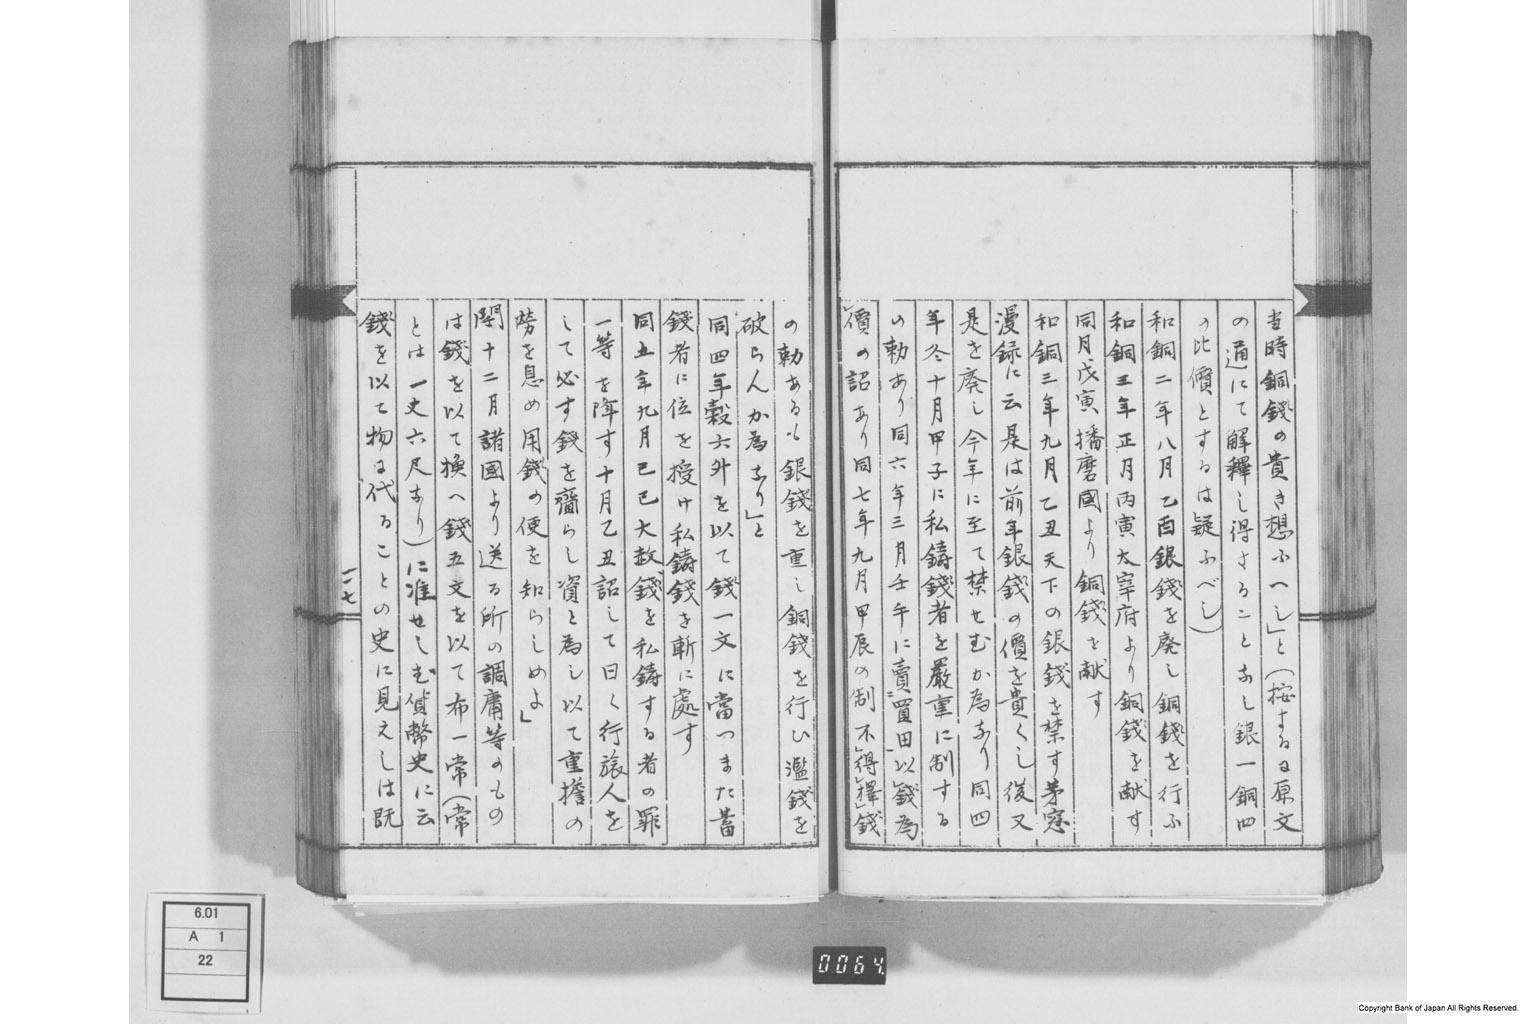 当時銅錢の貴き想ふへし」と(按するに原文
の通にて解釋し得さることなし銀一銅四
の比價とするは疑ふべし)
和銅二年八月乙酉銀錢を廃し銅錢を行ふ
和銅三年正月丙寅太宰府より銅錢を献す
同月戊寅播磨國より銅錢を献す
和銅三年九月乙丑天下の銀錢を禁す茅窓
漫録に云是は前年銀錢の價を貴くし後又
是を廃し今年に至て禁せむか為なり同四
年冬十月甲子に私鑄錢者を嚴重に制する
の勅あり同六年三月壬午に賣買田以錢為
價の詔あり同七年九月甲辰の制不得擇錢
の勅あるも銀錢を重し銅錢を行ひ濫錢を
破らんか為なり」と
同四年穀六升を以て錢一文に當つまた蓄
錢者に位を授け私鑄錢を斬に處す
同五年九月己巳大赦錢を私鑄する者の罪
一等を降す十月乙丑詔して曰く行旅人を
して必す錢を齎らし資と為し以て重擔の
勞を息め用錢の便を知らしめよ」
閏十二月諸國より送る所の調庸等のもの
は錢を以て換へ錢五文を以て布一常(常
とは一丈六尺あり)に准せしむ貨幣史に云
錢を以て物に代ることの史に見えしは既
一七
6.01
A 1
22
0064
Copyright Bank of Japan All Rights Reserved.